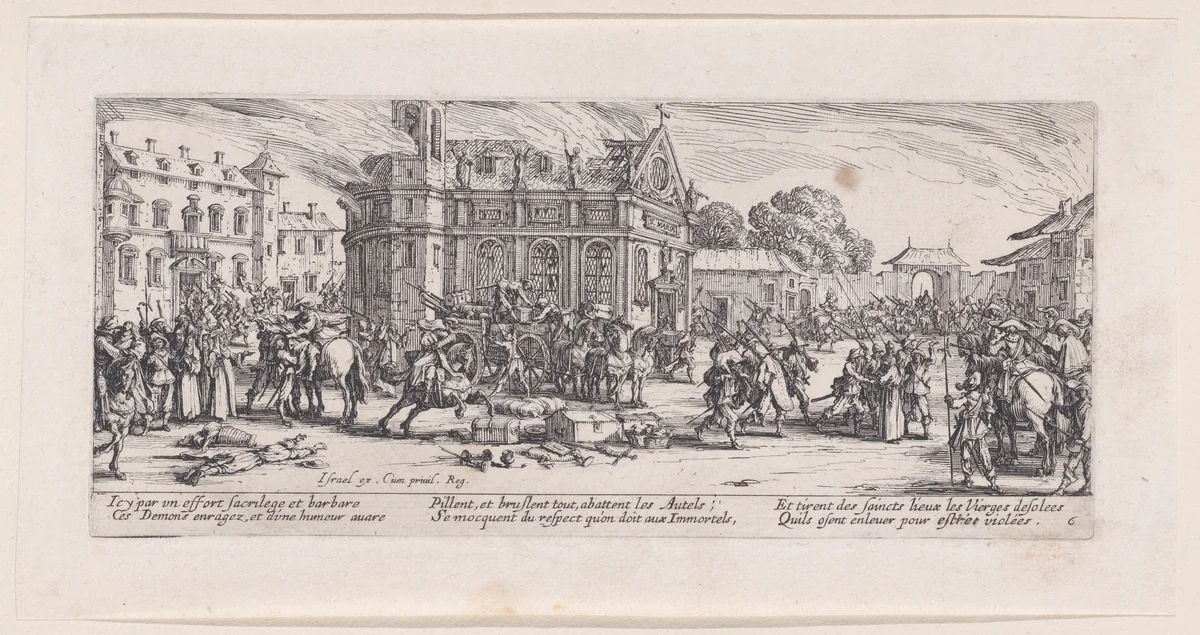 S MARIA
Israel ex. Cum priuil. Reg.
Icy par vn effort sacrilege et barbare
Ces Demons enragez, et d'vne humeur auare
Pillent, et bruslent tout, abattent les Autels ;
Se mocquent du respect qu'on doit aux Immortels,
Et tirent des saincts lieux les Vierges desolees
Qu'ils osent enleuer pour estre violées .
6